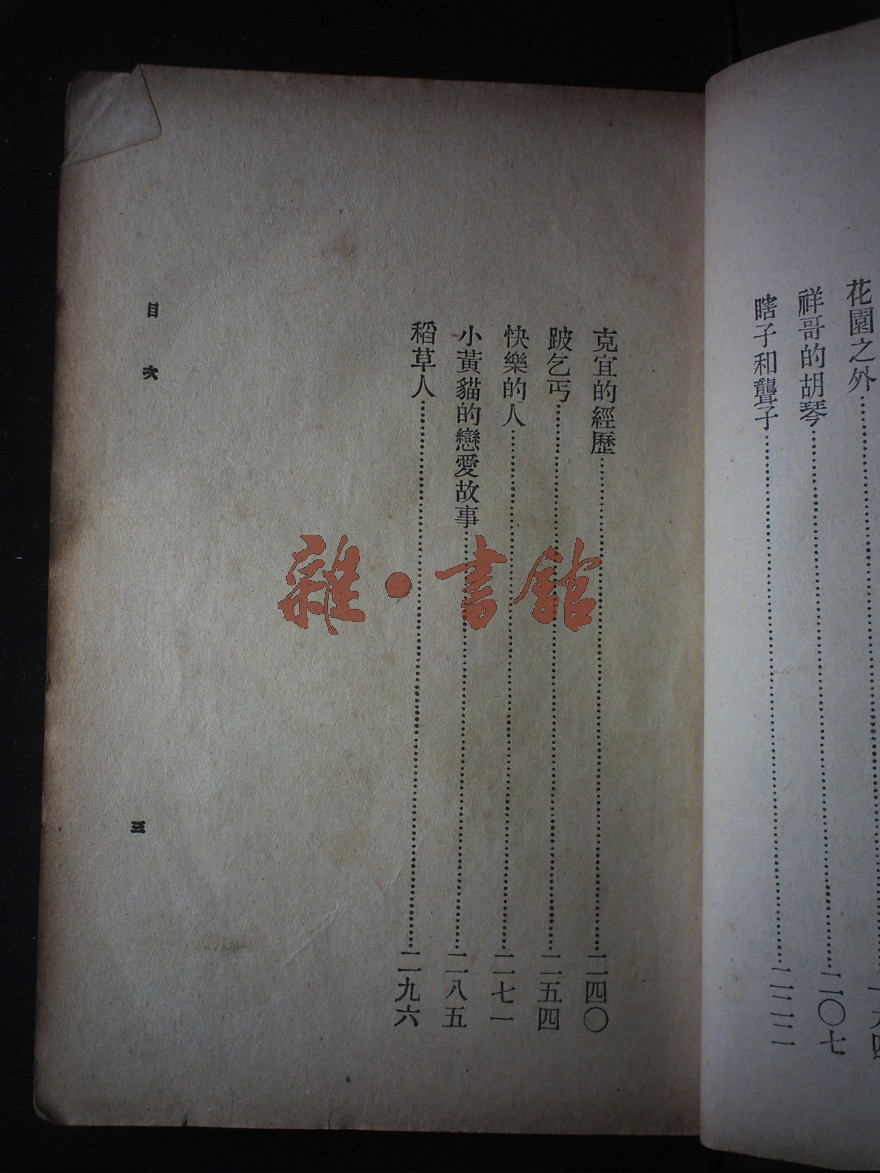 花園之外
祥哥的胡琴……二〇七
瞎子和聾子……二二二
克宜的經歷……二四〇
跛乞丐……二五四
快樂的人……二七一
小黃貓的戀愛故事……二八五
稻草人……二九六
目次
三
雜·書館